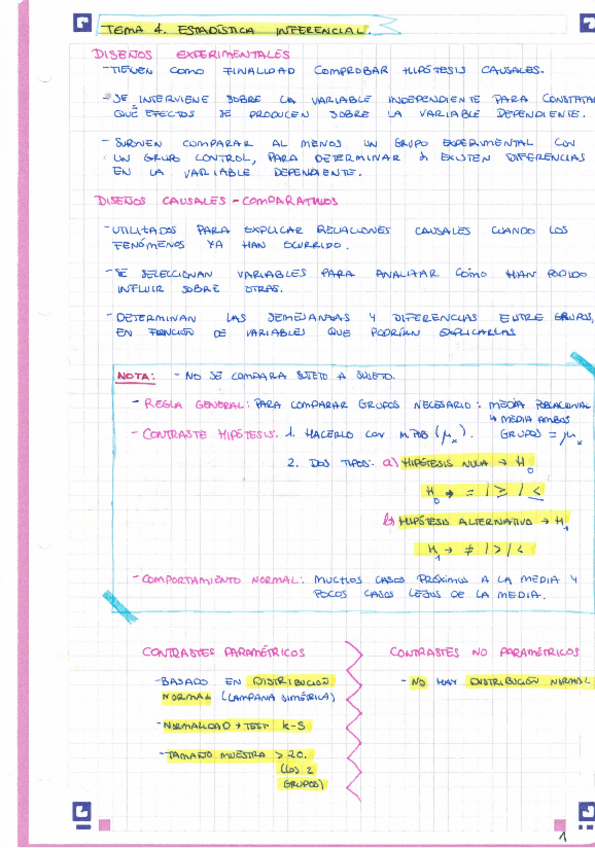 TEMA 4. ESTADÍSTICA INFERENCIAL.
DISEÑOS EXPERIMENTALES
- TIENEN COMO FINALIDAD COMPROBAR HIPÓTESIS CAUSALES.
- SE INTERVIENE SOBRE LA VARIABLE INDEPENDIENTE PARA CONSTATAR
QUÉ EFECTOS SE PRODUCEN SOBRE LA VARIABLE DEPENDIENTE.
- SUELEN COMPARAR AL MENOS UN GRUPO EXPERIMENTAL CON
UN GRUPO CONTROL, PARA DETERMINAR SI EXISTEN DIFERENCIAS
EN LA VARIABLE DEPENDIENTE.
DISEÑOS CAUSALES - COMPARATIVOS
- UTILIZADOS PARA EXPLICAR RELACIONES CAUSALES CUANDO LOS
FENÓMENOS YA HAN OCURRIDO.
- SE SELECCIONAN VARIABLES PARA ANALIZAR CÓMO HAN PODIDO
INFLUIR SOBRE OTRAS.
- DETERMINAN LAS SEMEJANZAS Y DIFERENCIAS ENTRE GRUPOS,
EN FUNCIÓN DE VARIABLES QUE PODRÍAN EXPLICARLAS
NOTA: - NO SE COMPARA SUJETO A SUJETO.
- REGLA GENERAL: PARA COMPARAR GRUPOS NECESARIO: MEDIA POBLACIONAL
↳ MEDIA AMBOS
GRUPOS = μx
- CONTRASTE HIPÓTESIS: 1. HACERLO CON (μx).
2. DOS TIPOS: a) HIPÓTESIS NULA → H0
H0 → = / ≥ / ≤
b) HIPÓTESIS ALTERNATIVO → H1
H1 → ≠ / > / <
- COMPORTAMIENTO NORMAL: MUCHOS CASOS PRÓXIMOS A LA MEDIA Y
POCOS CASOS LEJOS DE LA MEDIA.
CONTRASTES PARAMÉTRICOS
- BASADO EN DISTRIBUCIÓN
NORMAL (CAMPANA SIMÉTRICA)
- NORMALIDAD → TEST K-S
- TAMAÑO MUESTRA > 20.
(LOS 2
GRUPOS)
CONTRASTES NO PARAMÉTRICOS
- NO HAY DISTRIBUCIÓN NORMAL
1